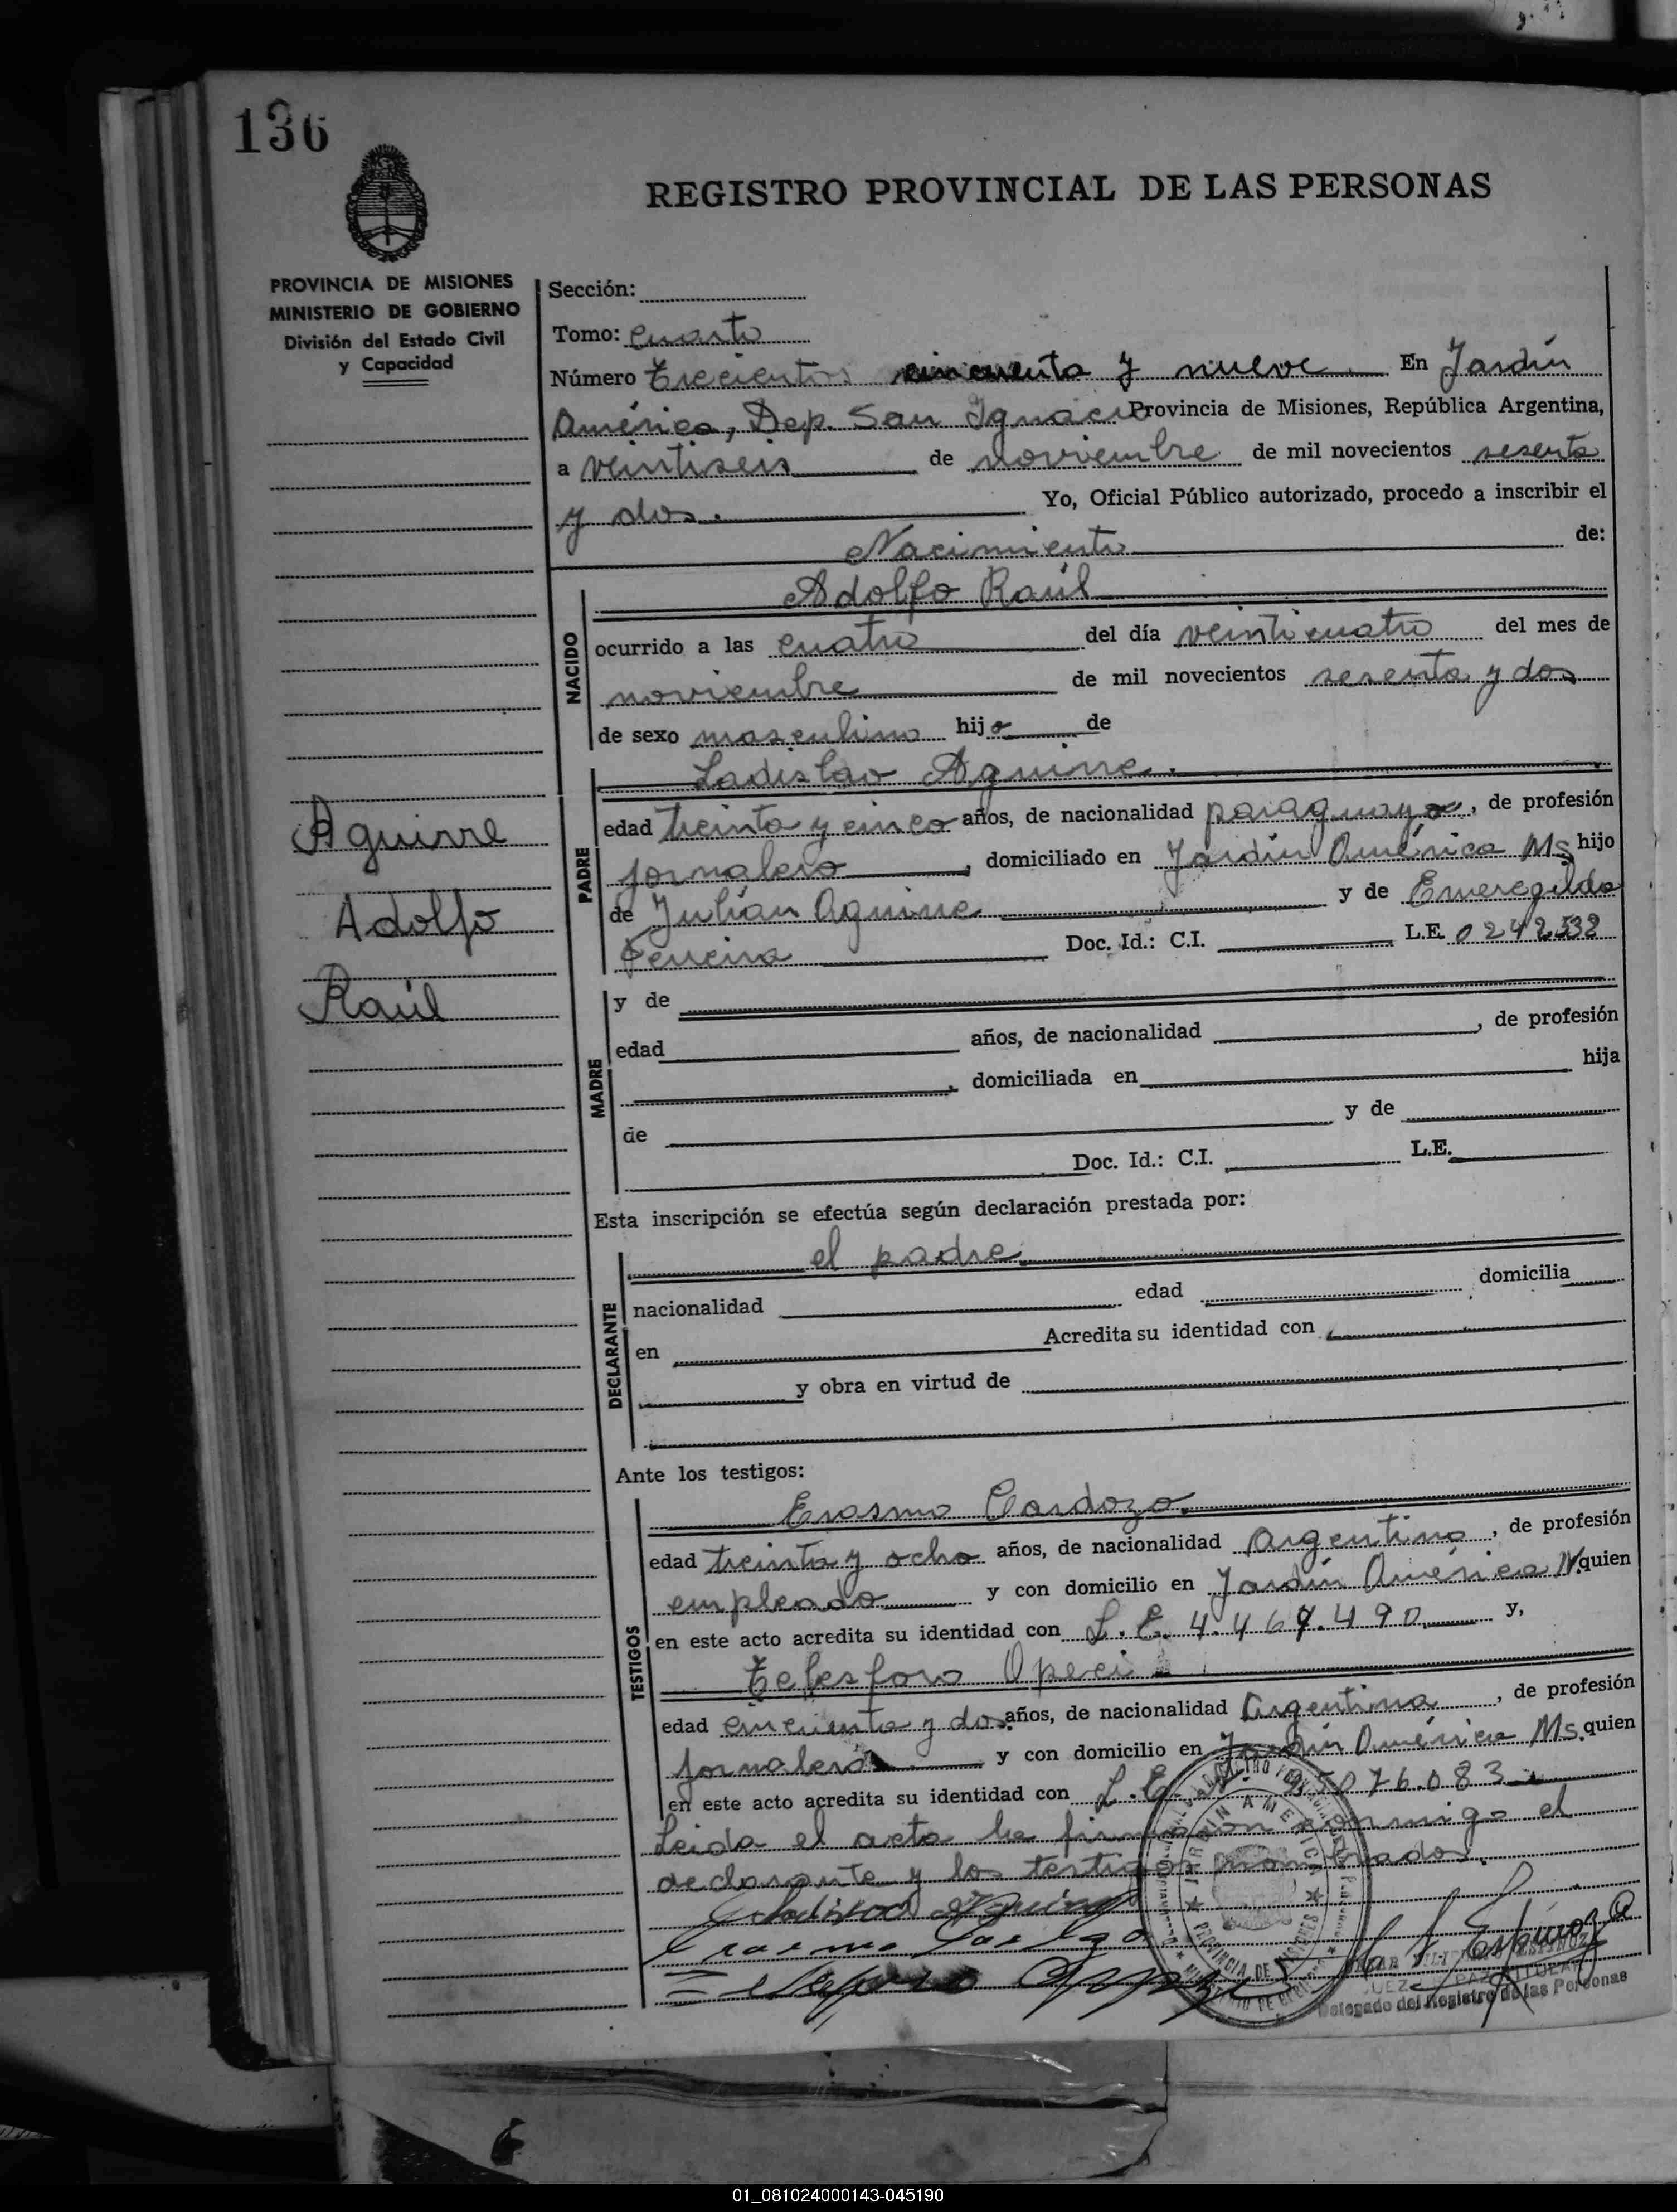 136
REGISTRO PROVINCIAL DE LAS PERSONAS
PROVINCIA DE MISIONES
MINISTERIO DE GOBIERNO
División del Estado Civil
y Capacidad
Sección:
Tomo: cuarto
Número Trecientos cincuenta y nueve En Jardín
América, Dep. San Ignacio Provincia de Misiones, República Argentina,
a veintiseis de noviembre de mil novecientos sesenta
y dos. Yo, Oficial Público autorizado, procedo a inscribir el
Nacimiento de:
NACIDO
Adolfo Raúl
ocurrido a las cuatro del día veinticuatro del mes de
noviembre de mil novecientos sesenta y dos
de sexo masculino hijo de
Aguirre
Adolfo
Raúl
PADRE
Ladislao Aguirre.
edad treinta y cinco años, de nacionalidad paraguayo, de profesión
jornalero, domiciliado en Jardín América Ms hijo
de Julián Aguirre y de Emeregilda
Ferreira Doc. Id.: C.I. L.E. 0242532
MADRE
y de
edad años, de nacionalidad , de profesión
, domiciliada en hija
de y de
Doc. Id.: C.I. L.E.
Esta inscripción se efectúa según declaración prestada por:
DECLARANTE
el padre
nacionalidad edad domicilia
en Acredita su identidad con
y obra en virtud de
Ante los testigos:
TESTIGOS
Erasmo Cardozo.
edad treinta y ocho años, de nacionalidad Argentina, de profesión
empleado y con domicilio en Jardín América quien
en este acto acredita su identidad con L.E. 4.467.490 y,
Telesforo
edad cincuenta y dos años, de nacionalidad Argentina, de profesión
jornalero y con domicilio en Jardín América Ms. quien
en este acto acredita su identidad con L.E. 5076.083
Leida el acta la firmaron conmigo el
declarante y los testigos nombrados.
JARDIN AMERICA
PROVINCIA DE MISIONES
Espinoza
JUEZ DE PAZ TITULAR
Delegado del Registro de las Personas
01_081024000143-045190